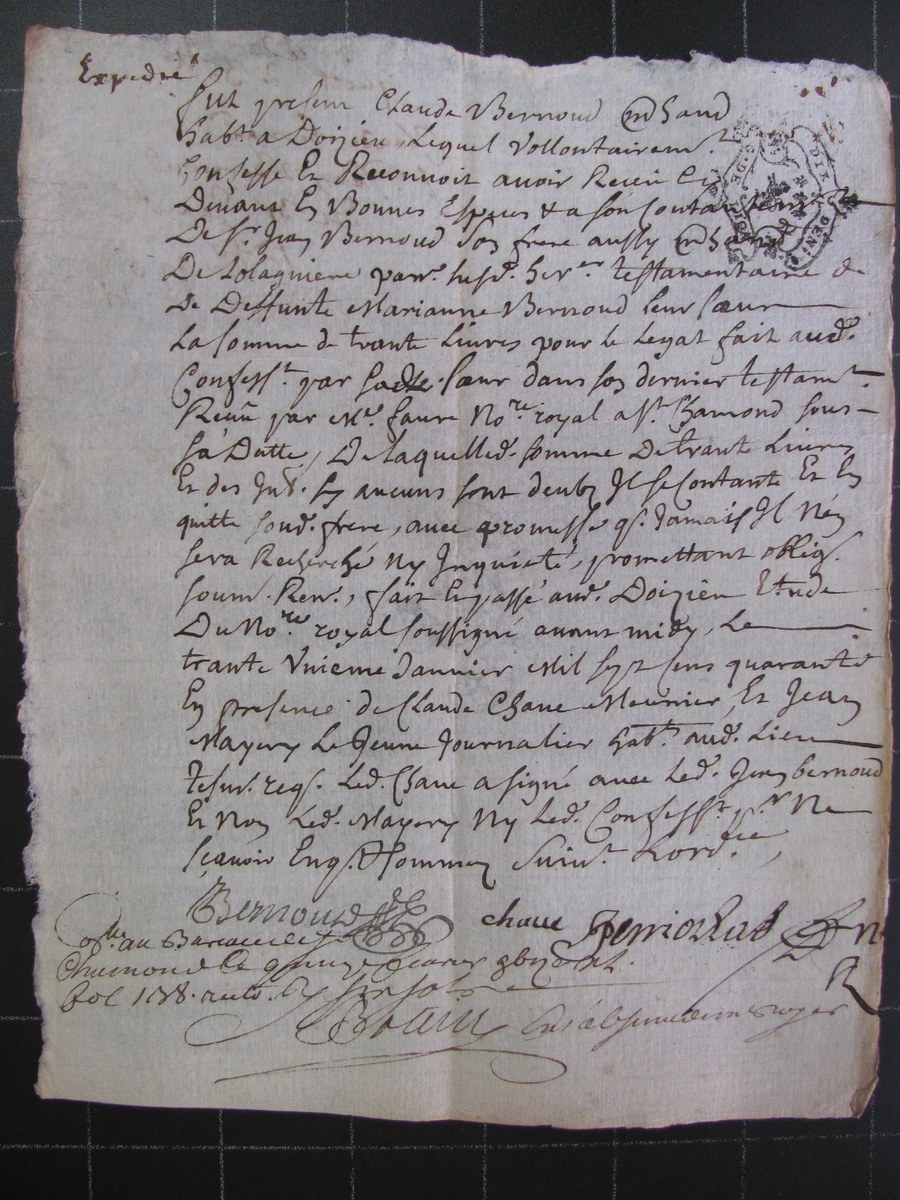 Expedié
fut present Claude Bernoud mchand
habt. a Doizieu, Lequel Vollontairemt.
Confesse Et Reconnoit avoir Receu Cy
Devant En Bonnes Espèces & a son Contantemt
De sr. Jean Bernoud Son frere aussy mchand
De Lolagniere parr. susd. her.er testamentaire de
De Deffunte Marianne Bernoud leur sœur
La somme de trante Livres pour le Legat fait aud.
Confesst. par sadte. sœur dans son dernier testamt.
Receu par Me. faure No.re royal a St. Chamond sous
sa Datte, De laquelled. somme De trante Livres
Et des Int. sy aucuns sont deubz Il se Contante Et En
quitte soud. frere, avec promesse q. Jamais Il N'en
sera Recherché Ny Inquieté, promettant oblig.
soum. Ren., fait En passé aud. Doizieu Etude
Du No.re royal soussigné avant midy, Le
trante Unieme Janvier Mil sept sens quarante
En presence de Claude Chave Meunier, Et Jean
Mayery Le Jeune Journalier habt. aud. Lieu
tesm. req. Led. Chave a signé avec Led. Jean bernoud
Et Non Led. Mayery Ny Led. Confesst. pr. Ne
sçavoir Enq. & Sommez Suivt. Lord.ce,
Bernoud chave
au Bureau de St
Chamond le quinze 
fol 158. recto. 
En l'absence de mr Roger